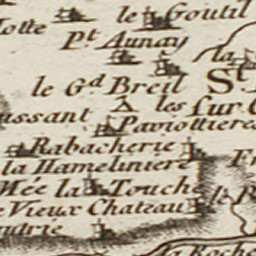 le Goutil
lotte
Pt Aunay
la
le Gd Breil St
les sur
ussant
Paviottieres
Rabacherie
la Hameliniere Fr
Mée la Touche
le P
Vieux Chateau
udrie
la Roche